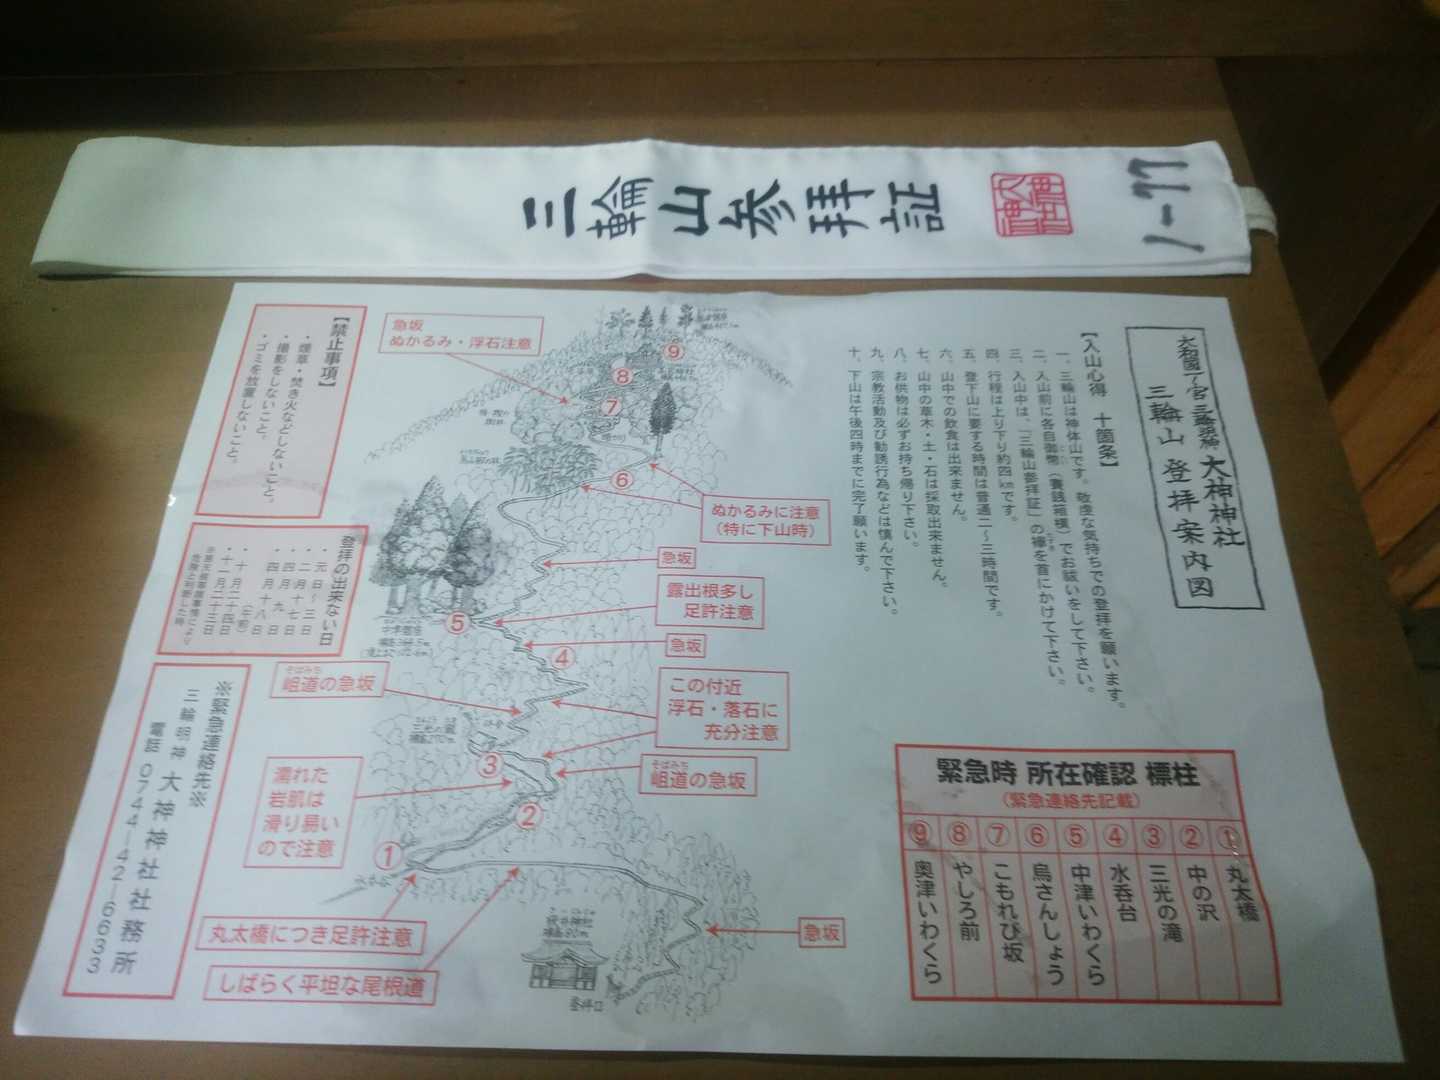 三輪山参拝証
大神神社
1-77
大和國一宮 三輪明神 大神神社
三輪山 登拝案内図
【入山心得 十箇条】
一、三輪山は神体山です。敬虔な気持ちでの登拝を願います。
二、入山前に各自御幣（賽銭箱横）でお祓いをして下さい。
三、入山中は、「三輪山参拝証」の襷を首にかけて下さい。
四、行程は上り下り約四㎞です。
五、登下山に要する時間は普通二～三時間です。
六、山中での飲食は出来ません。
七、山中の草木・土・石は採取出来ません。
八、お供物は必ずお持ち帰り下さい。
九、宗教活動及び勧誘行為などは慎んで下さい。
十、下山は午後四時までに完了願います。
緊急時 所在確認 標柱
（緊急連絡先記載）
① 丸太橋
② 中の沢
③ 三光の滝
④ 水呑台
⑤ 中津いわくら
⑥ 烏さんしょう
⑦ こもれび坂
⑧ やしろ前
⑨ 奥津いわくら
急坂
ぬかるみ・浮石注意
⑨
⑧
⑦
⑥
ぬかるみに注意
（特に下山時）
急坂
露出根多し
足許注意
⑤
中津磐座
急坂
④
そばみち
岨道の急坂
この付近
浮石・落石に
充分注意
三光の瀧
③
そばみち
岨道の急坂
濡れた
岩肌は
滑り易い
ので注意
②
①
丸太橋につき足許注意
しばらく平坦な尾根道
急坂
狭井神社
登拝口
【禁止事項】
・煙草・焚き火などしないこと。
・撮影をしないこと。
・ゴミを放置しないこと。
登拝の出来ない日
・元日～三日
・二月十七日
・四月 九日
・四月十八日
・十月二十四日
（午前）
十一月二十三日
危険と判断した時
※緊急連絡先※
三輪明神 大神神社社務所
電話 0744―42―6633